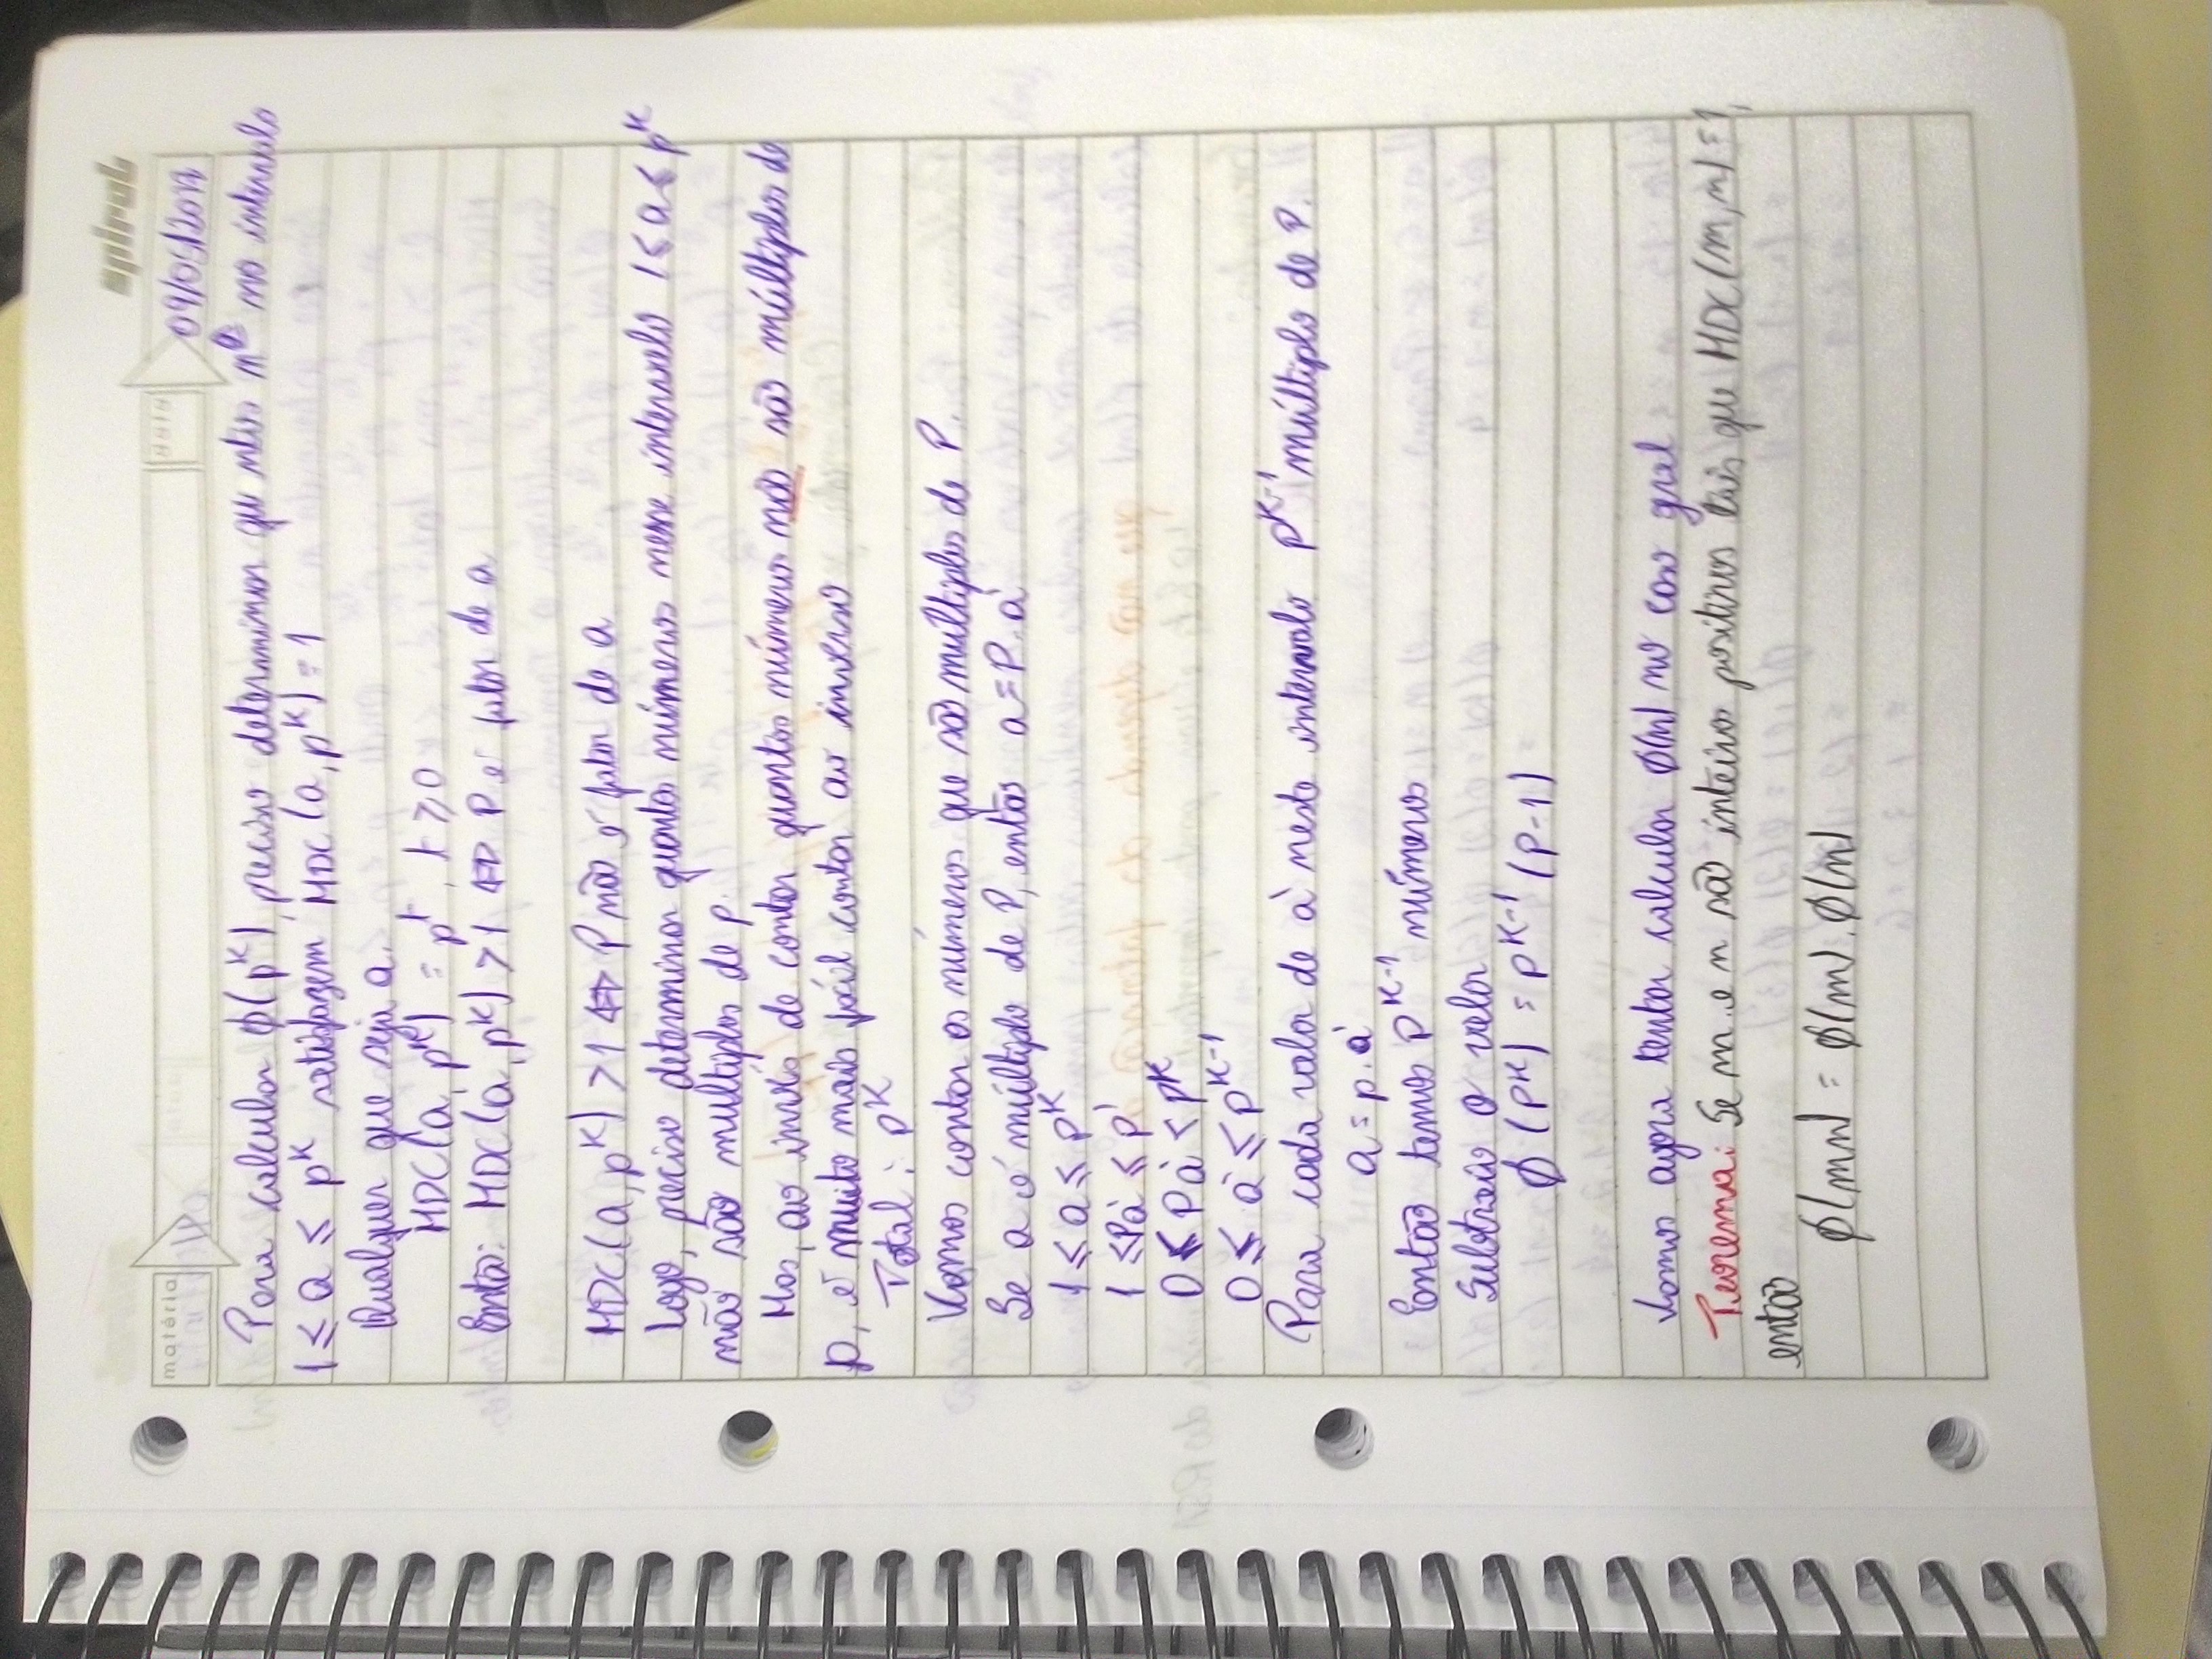 spiral
matéria
data
09/05/2017
Para calcular ϕ(p^k), preciso determinar quantos nºs no intervalo
1 ≤ a ≤ p^k satisfazem MDC(a, p^k) = 1
Qualquer que seja a.
MDC(a, p^k) = p^t, t ≥ 0
Então: MDC(a, p^k) > 1 ⇔ P é fator de a
MDC(a, p^k) > 1 ⇔ P não é fator de a
Logo, preciso determinar quantos números nesse intervalo 1 ≤ a ≤ p^k
não são multiplos de p.
Mas, ao invés de contar quantos números não são múltiplos de
p, é muito mais fácil contar ao inverso
Total: p^k
Vamos contar os números que são multiplos de P.
Se a é múltiplo de P, então a = P.a'
1 ≤ a ≤ p^k
1 ≤ Pa' ≤ p'
0 ≤ Pa' ≤ p^k
0 ≤ a' ≤ p^k-1
Para cada valor de a' neste intervalo P^k-1 múltiplo de P.
a = p.a'
Então temos P^k-1 números
Subtraio o valor
ϕ(P^k) = P^k-1 (P-1)
Vamos agora tentar calcular ϕ(n) no caso geral
Teorema: Se m e n são inteiros positivos tais que MDC(m, n) = 1,
então
ϕ(mn) = ϕ(m).ϕ(n)